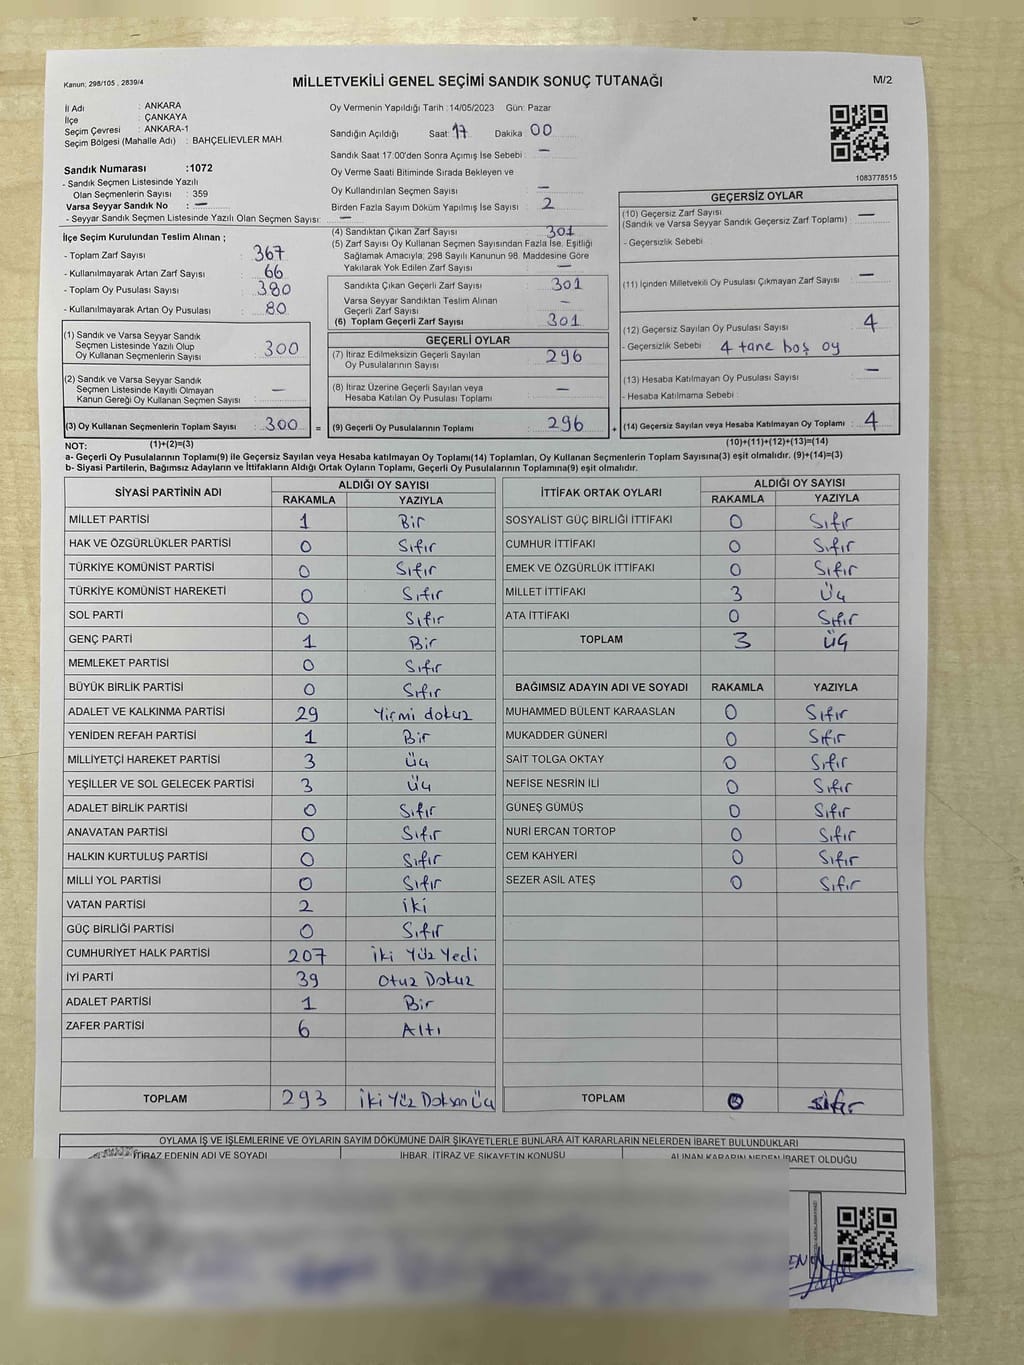 Kanun; 298/105 , 2839/4
MİLLETVEKİLİ GENEL SEÇİMİ SANDIK SONUÇ TUTANAĞI
M/2
İl Adı : ANKARA
İlçe : ÇANKAYA
Seçim Çevresi : ANKARA-1
Seçim Bölgesi (Mahalle Adı) : BAHÇELİEVLER MAH.
Sandık Numarası :1072
- Sandık Seçmen Listesinde Yazılı
Olan Seçmenlerin Sayısı : 359
Varsa Seyyar Sandık No : —
- Seyyar Sandık Seçmen Listesinde Yazılı Olan Seçmen Sayısı: —
Oy Vermenin Yapıldığı Tarih :14/05/2023 Gün: Pazar
Sandığın Açıldığı Saat: 17 Dakika 00
Sandık Saat 17:00'den Sonra Açımış İse Sebebi : —
Oy Verme Saati Bitiminde Sırada Bekleyen ve
Oy Kullandırılan Seçmen Sayısı : —
Birden Fazla Sayım Döküm Yapılmış İse Sayısı : 2
1083778515
İlçe Seçim Kurulundan Teslim Alınan ;
- Toplam Zarf Sayısı : 367
- Kullanılmayarak Artan Zarf Sayısı : 66
- Toplam Oy Pusulası Sayısı : 380
- Kullanılmayarak Artan Oy Pusulası : 80
(1) Sandık ve Varsa Seyyar Sandık
Seçmen Listesinde Yazılı Olup
Oy Kullanan Seçmenlerin Sayısı : 300
(2) Sandık ve Varsa Seyyar Sandık
Seçmen Listesinde Kayıtlı Olmayan
Kanun Gereği Oy Kullanan Seçmen Sayısı : —
(3) Oy Kullanan Seçmenlerin Toplam Sayısı : 300 =
(4) Sandıktan Çıkan Zarf Sayısı : 301
(5) Zarf Sayısı Oy Kullanan Seçmen Sayısından Fazla İse, Eşitliği
Sağlamak Amacıyla; 298 Sayılı Kanunun 98. Maddesine Göre
Yakılarak Yok Edilen Zarf Sayısı : —
Sandıkta Çıkan Geçerli Zarf Sayısı : 301
Varsa Seyyar Sandıktan Teslim Alınan
Geçerli Zarf Sayısı : —
(6) Toplam Geçerli Zarf Sayısı : 301
GEÇERLİ OYLAR
(7) İtiraz Edilmeksizin Geçerli Sayılan
Oy Pusulalarının Sayısı : 296
(8) İtiraz Üzerine Geçerli Sayılan veya
Hesaba Katılan Oy Pusulası Toplamı : —
(9) Geçerli Oy Pusulalarının Toplamı : 296 +
GEÇERSİZ OYLAR
(10) Geçersiz Zarf Sayısı : —
(Sandık ve Varsa Seyyar Sandık Geçersiz Zarf Toplamı)
- Geçersizlik Sebebi
(11) İçinden Milletvekili Oy Pusulası Çıkmayan Zarf Sayısı : —
(12) Geçersiz Sayılan Oy Pusulası Sayısı : 4
- Geçersizlik Sebebi : 4 tane boş oy
(13) Hesaba Katılmayan Oy Pusulası Sayısı : —
- Hesaba Katılmama Sebebi :
(14) Geçersiz Sayılan veya Hesaba Katılmayan Oy Toplamı : 4
NOT: (1)+(2)=(3)
(10)+(11)+(12)+(13)=(14)
a- Geçerli Oy Pusulalarının Toplamı(9) ile Geçersiz Sayılan veya Hesaba katılmayan Oy Toplamı(14) Toplamları, Oy Kullanan Seçmenlerin Toplam Sayısına(3) eşit olmalıdır. (9)+(14)=(3)
b- Siyasi Partilerin, Bağımsız Adayların ve İttifakların Aldığı Ortak Oyların Toplamı, Geçerli Oy Pusulalarının Toplamına(9) eşit olmalıdır.
SİYASİ PARTİNİN ADI ALDIĞI OY SAYISI
RAKAMLA YAZIYLA
MİLLET PARTİSİ 1 Bir
HAK VE ÖZGÜRLÜKLER PARTİSİ 0 Sıfır
TÜRKİYE KOMÜNİST PARTİSİ 0 Sıfır
TÜRKİYE KOMÜNİST HAREKETİ 0 Sıfır
SOL PARTİ 0 Sıfır
GENÇ PARTİ 1 Bir
MEMLEKET PARTİSİ 0 Sıfır
BÜYÜK BİRLİK PARTİSİ 0 Sıfır
ADALET VE KALKINMA PARTİSİ 29 Yirmi dokuz
YENİDEN REFAH PARTİSİ 1 Bir
MİLLİYETÇİ HAREKET PARTİSİ 3 Üç
YEŞİLLER VE SOL GELECEK PARTİSİ 3 Üç
ADALET BİRLİK PARTİSİ 0 Sıfır
ANAVATAN PARTİSİ 0 Sıfır
HALKIN KURTULUŞ PARTİSİ 0 Sıfır
MİLLİ YOL PARTİSİ 0 Sıfır
VATAN PARTİSİ 2 İki
GÜÇ BİRLİĞİ PARTİSİ 0 Sıfır
CUMHURİYET HALK PARTİSİ 207 İki Yüz Yedi
İYİ PARTİ 39 Otuz Dokuz
ADALET PARTİSİ 1 Bir
ZAFER PARTİSİ 6 Altı
TOPLAM 293 İki Yüz Doksan Üç
İTTİFAK ORTAK OYLARI ALDIĞI OY SAYISI
RAKAMLA YAZIYLA
SOSYALİST GÜÇ BİRLİĞİ İTTİFAKI 0 Sıfır
CUMHUR İTTİFAKI 0 Sıfır
EMEK VE ÖZGÜRLÜK İTTİFAKI 0 Sıfır
MİLLET İTTİFAKI 3 Üç
ATA İTTİFAKI 0 Sıfır
TOPLAM 3 Üç
BAĞIMSIZ ADAYIN ADI VE SOYADI RAKAMLA YAZIYLA
MUHAMMED BÜLENT KARAASLAN 0 Sıfır
MUKADDER GÜNERİ 0 Sıfır
SAİT TOLGA OKTAY 0 Sıfır
NEFİSE NESRİN İLİ 0 Sıfır
GÜNEŞ GÜMÜŞ 0 Sıfır
NURİ ERCAN TORTOP 0 Sıfır
CEM KAHYERİ 0 Sıfır
SEZER ASİL ATEŞ 0 Sıfır
TOPLAM 0 Sıfır
OYLAMA İŞ VE İŞLEMLERİNE VE OYLARIN SAYIM DÖKÜMÜNE DAİR ŞİKAYETLERLE BUNLARA AİT KARARLARIN NELERDEN İBARET BULUNDUKLARI
İTİRAZ EDENİN ADI VE SOYADI İHBAR, İTİRAZ VE ŞİKAYETİN KONUSU ALINAN KARARIN NEDEN İBARET OLDUĞU